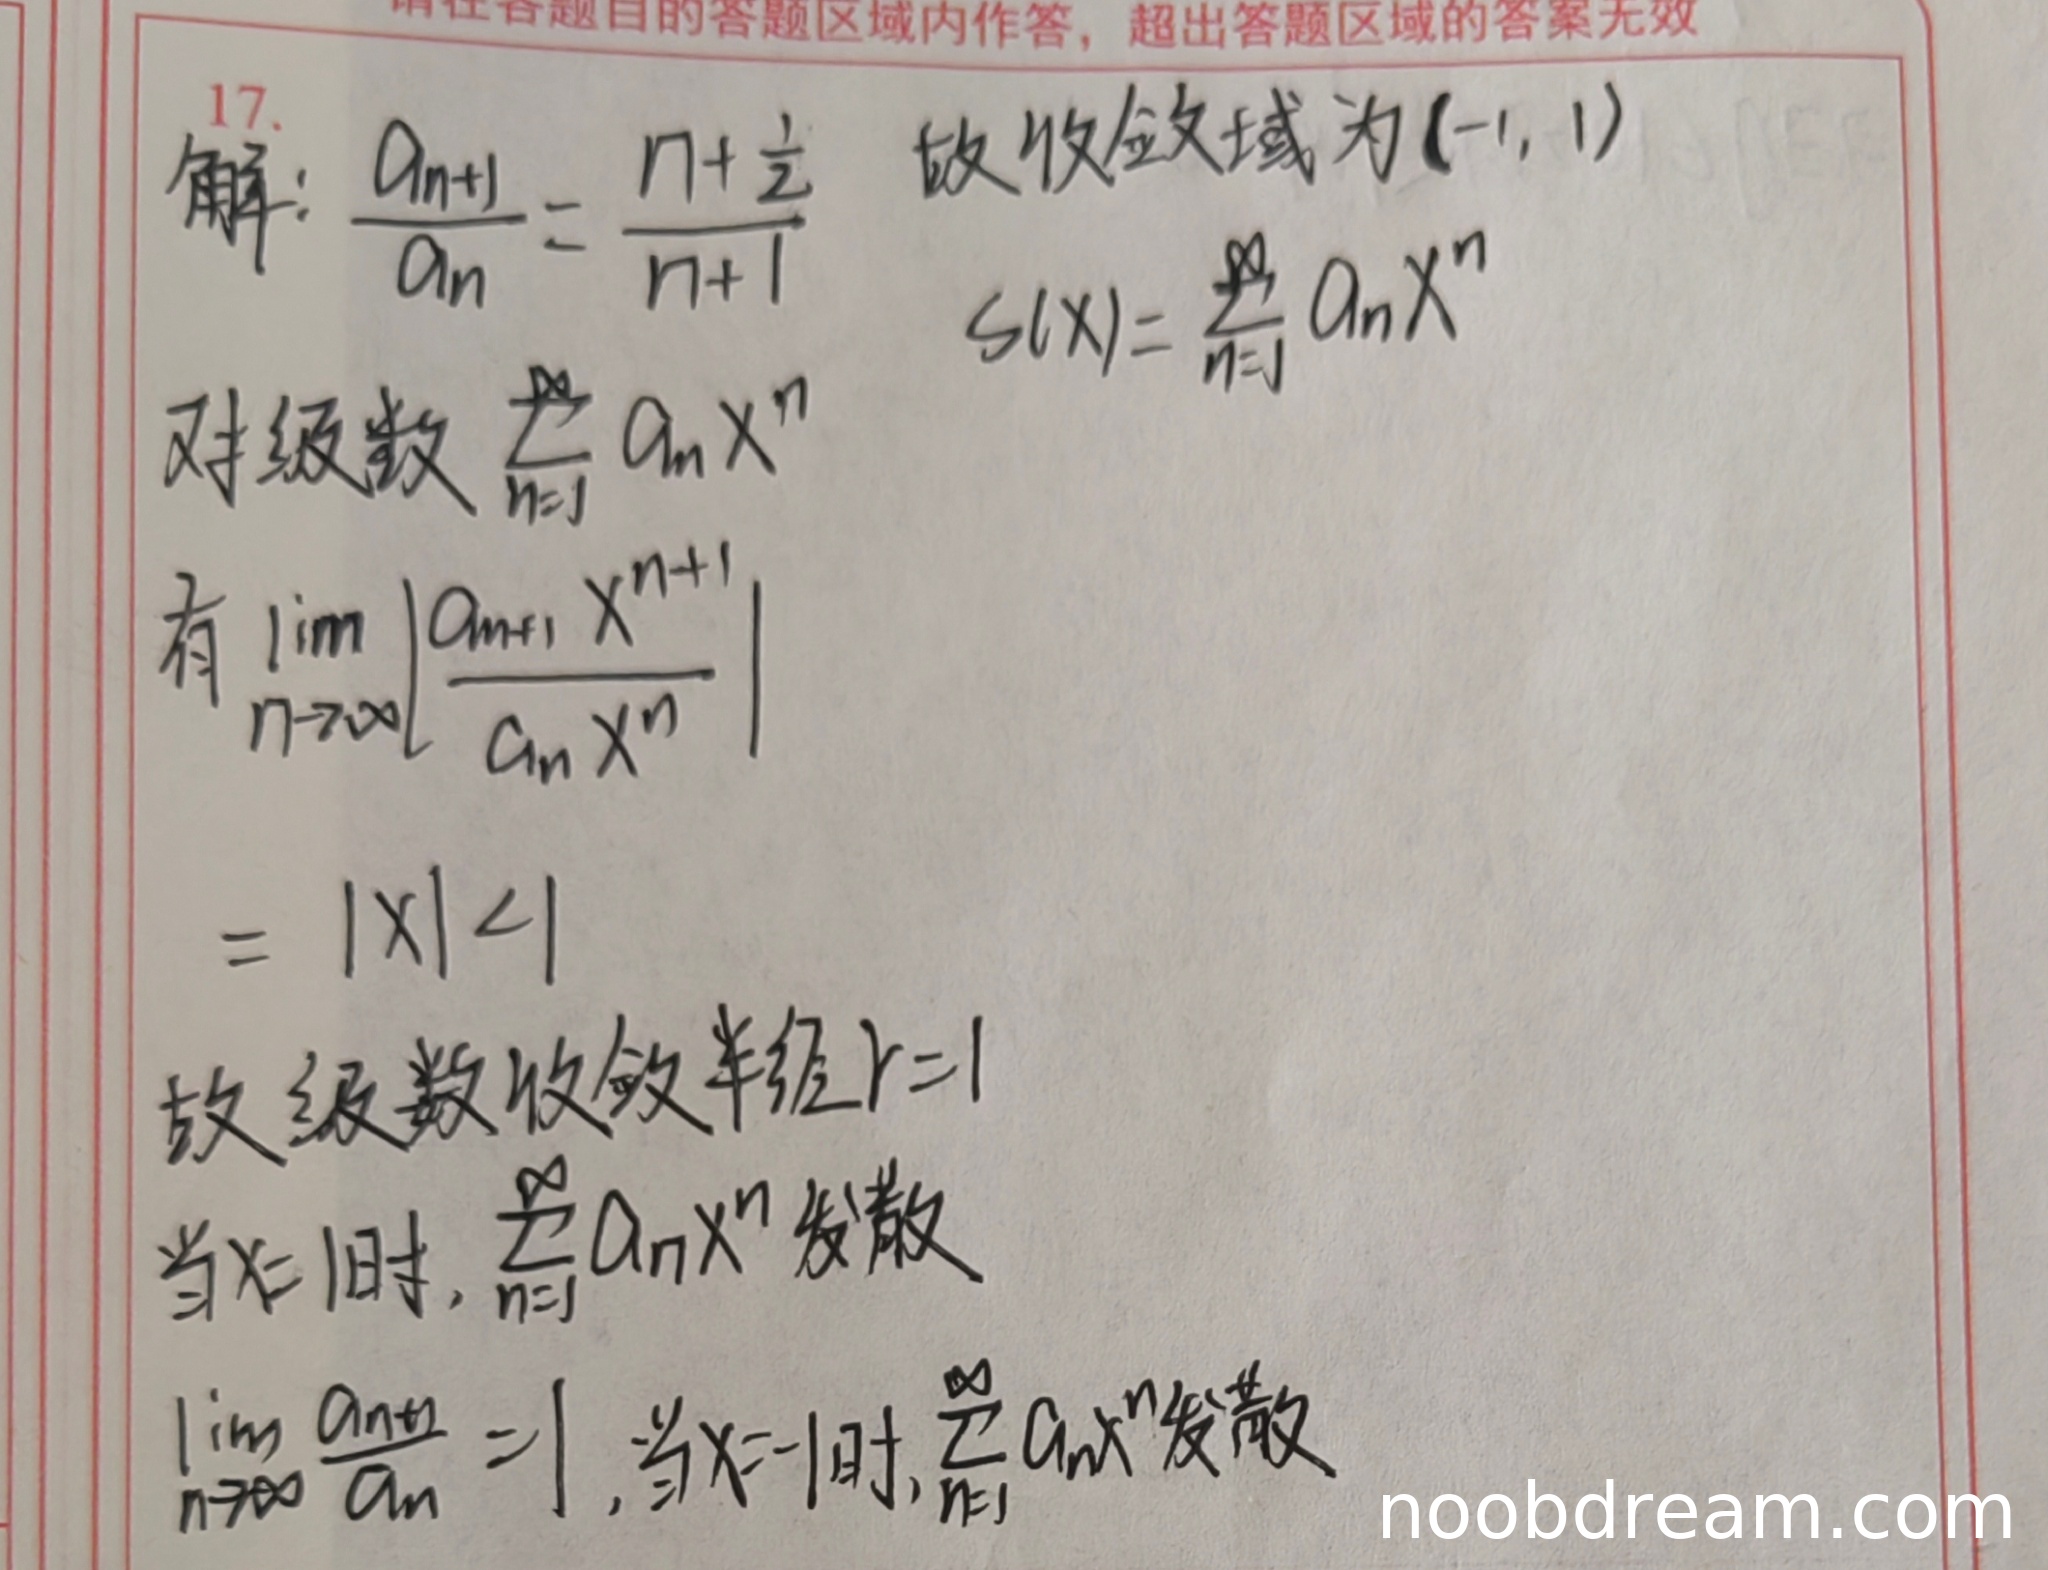 请在各题目的答题区域内作答，超出答题区域的答案无效
17.
解: \frac{a_{n+1}}{a_n} = \frac{n+\frac{1}{2}}{n+1}
对级数 \sum_{n=1}^{\infty} a_n x^n
有 \lim_{n→∞} \left| \frac{a_{n+1} x^{n+1}}{a_n x^n} \right|
= |x| < 1
故级数收敛半径 r=1
当x=1时, \sum_{n=1}^{\infty} a_n x^n 发散
\lim_{n→∞} \frac{a_{n+1}}{a_n} = 1, 当x=-1时, \sum_{n=1}^{\infty} a_n x^n 发散
故收敛域为(-1, 1)
S(x) = \sum_{n=1}^{\infty} a_n x^n
noobdream.com